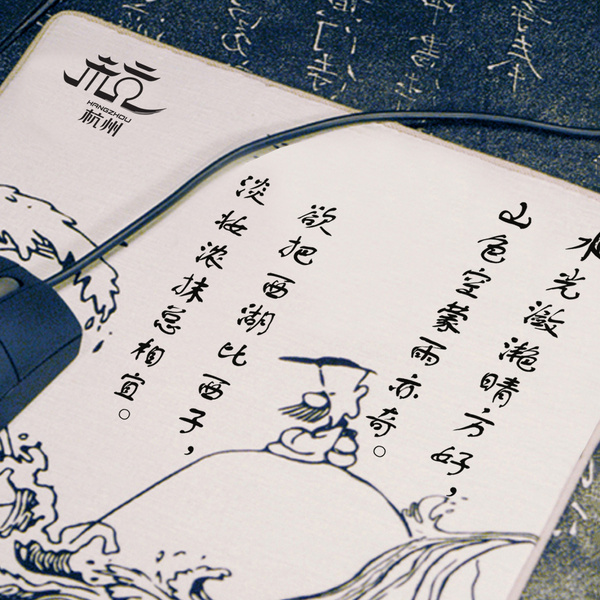 水光潋滟晴方好，
山色空蒙雨亦奇。
欲把西湖比西子，
淡妆浓抹总相宜。
杭
HANGZHOU
杭州